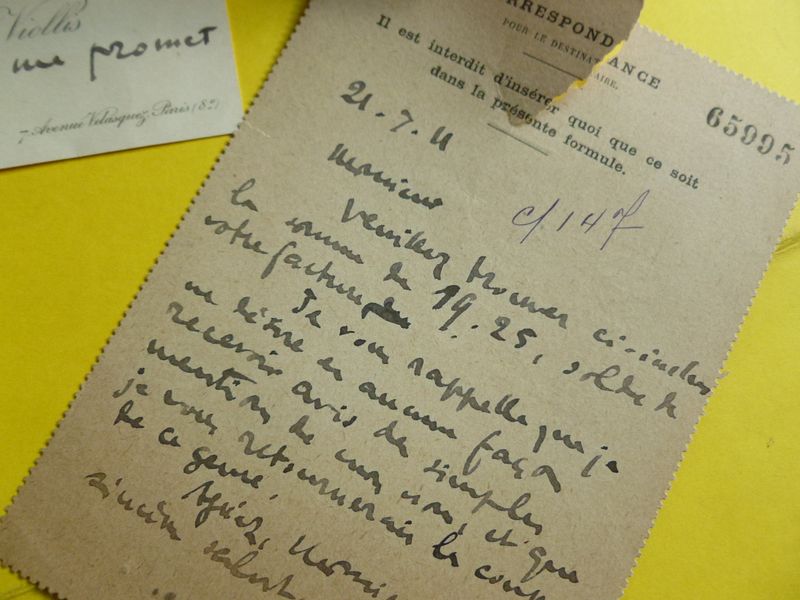 Viollis
me promet
7 Avenue Velasquez, Paris (8e)
RRESPONDANCE
POUR LE DESTINATAIRE.
Il est interdit d'insérer quoi que ce soit
dans la présente formule.
65995
21.7.11
c/ 147
Monsieur
Veuillez trouver ci-inclus
la somme de 19.25, solde de
votre facture
Je vous rappelle que je
ne désire en aucune façon
recevoir avis des simples
mentions de mon nom, et que
je vous retournerais les coup
de ce genre.
Agréez, Monsie
sincères salut